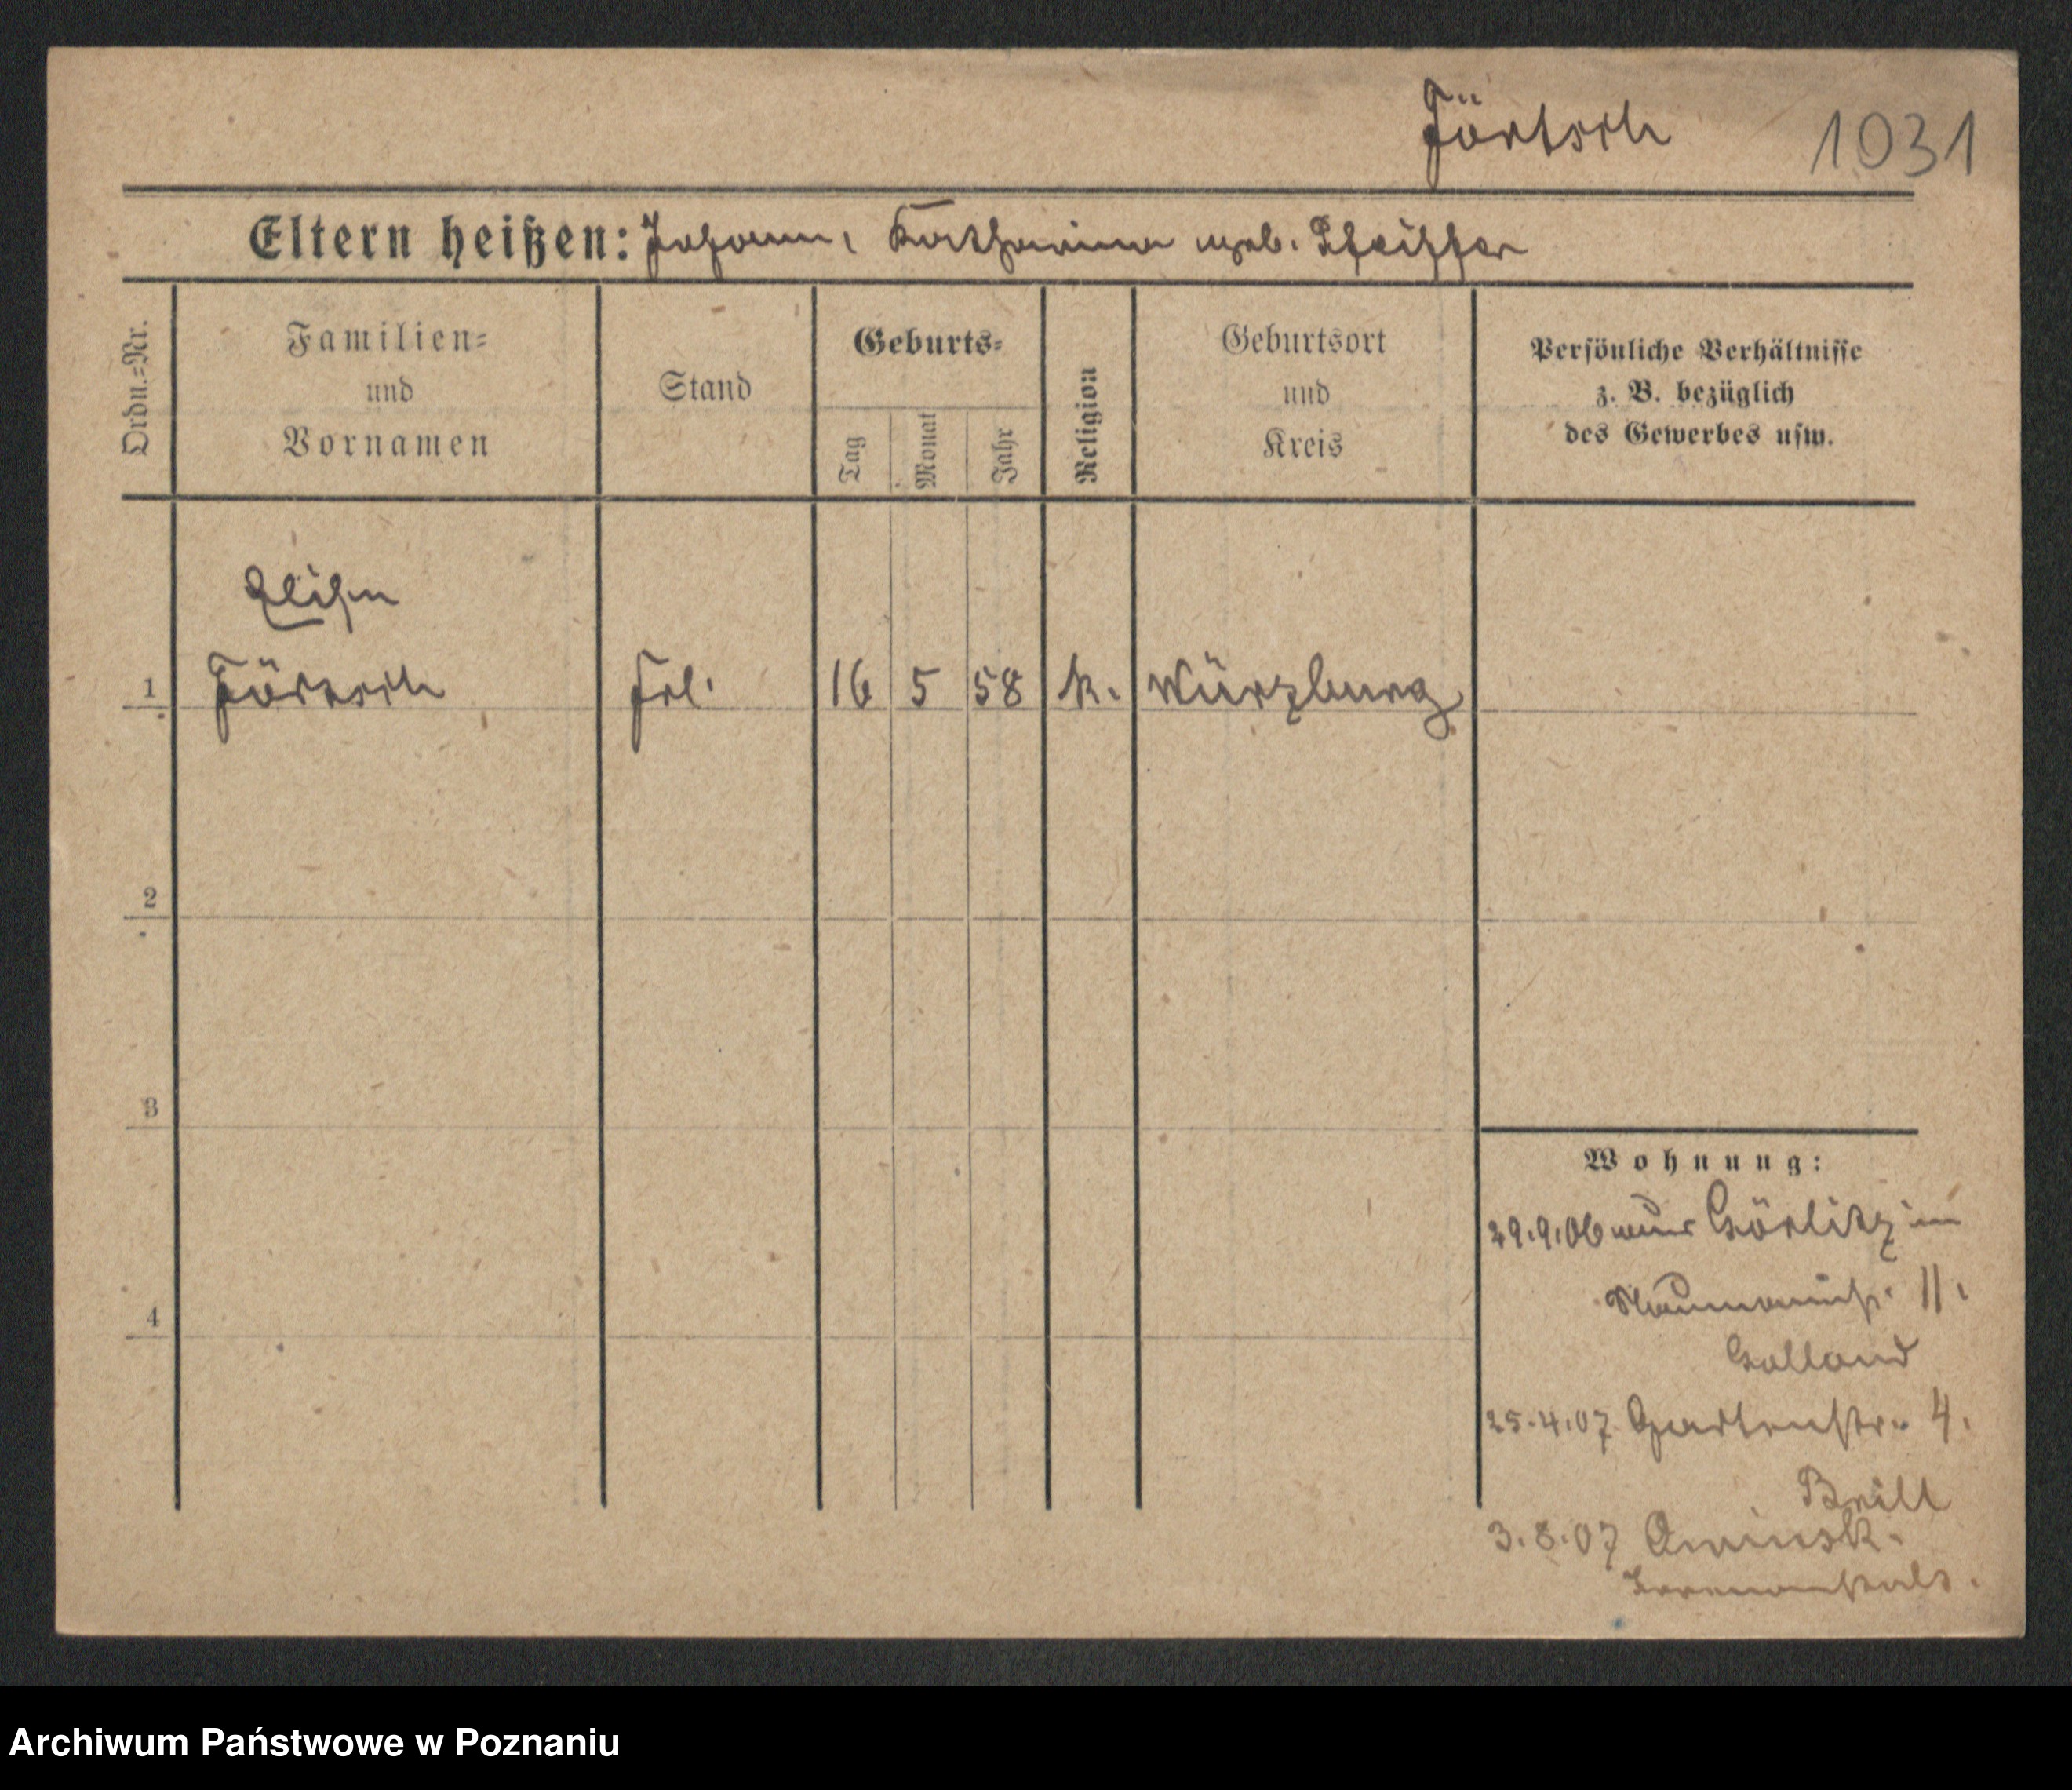 Förtsch 1031
Eltern heißen: Johann, Katharina geb. Pfeiffer
Ordn.=Nr.
Familien=
und
Vornamen
Stand
Geburts=
Tag
Monat
Jahr
Religion
Geburtsort
und
Kreis
Persönliche Verhältnisse
z. B. bezüglich
des Gewerbes usw.
Elise
1 Förtsch Frl. 16 5 58 k. Würzburg
2
3
4
Wohnung:
29.9.06 aus Görlitz in
Naumannstr. 11.
Galland
25.4.07 Gartenstr. 4.
Brill
3.8.07 Owinsk.
Irrenanstalt.
Archiwum Państwowe w Poznaniu